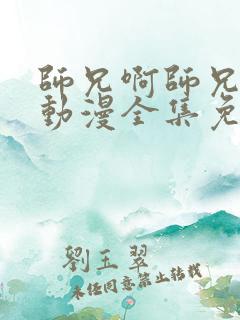 師兄啊師兄
動漫全集免
劉玉翠
未經同意禁止轉載